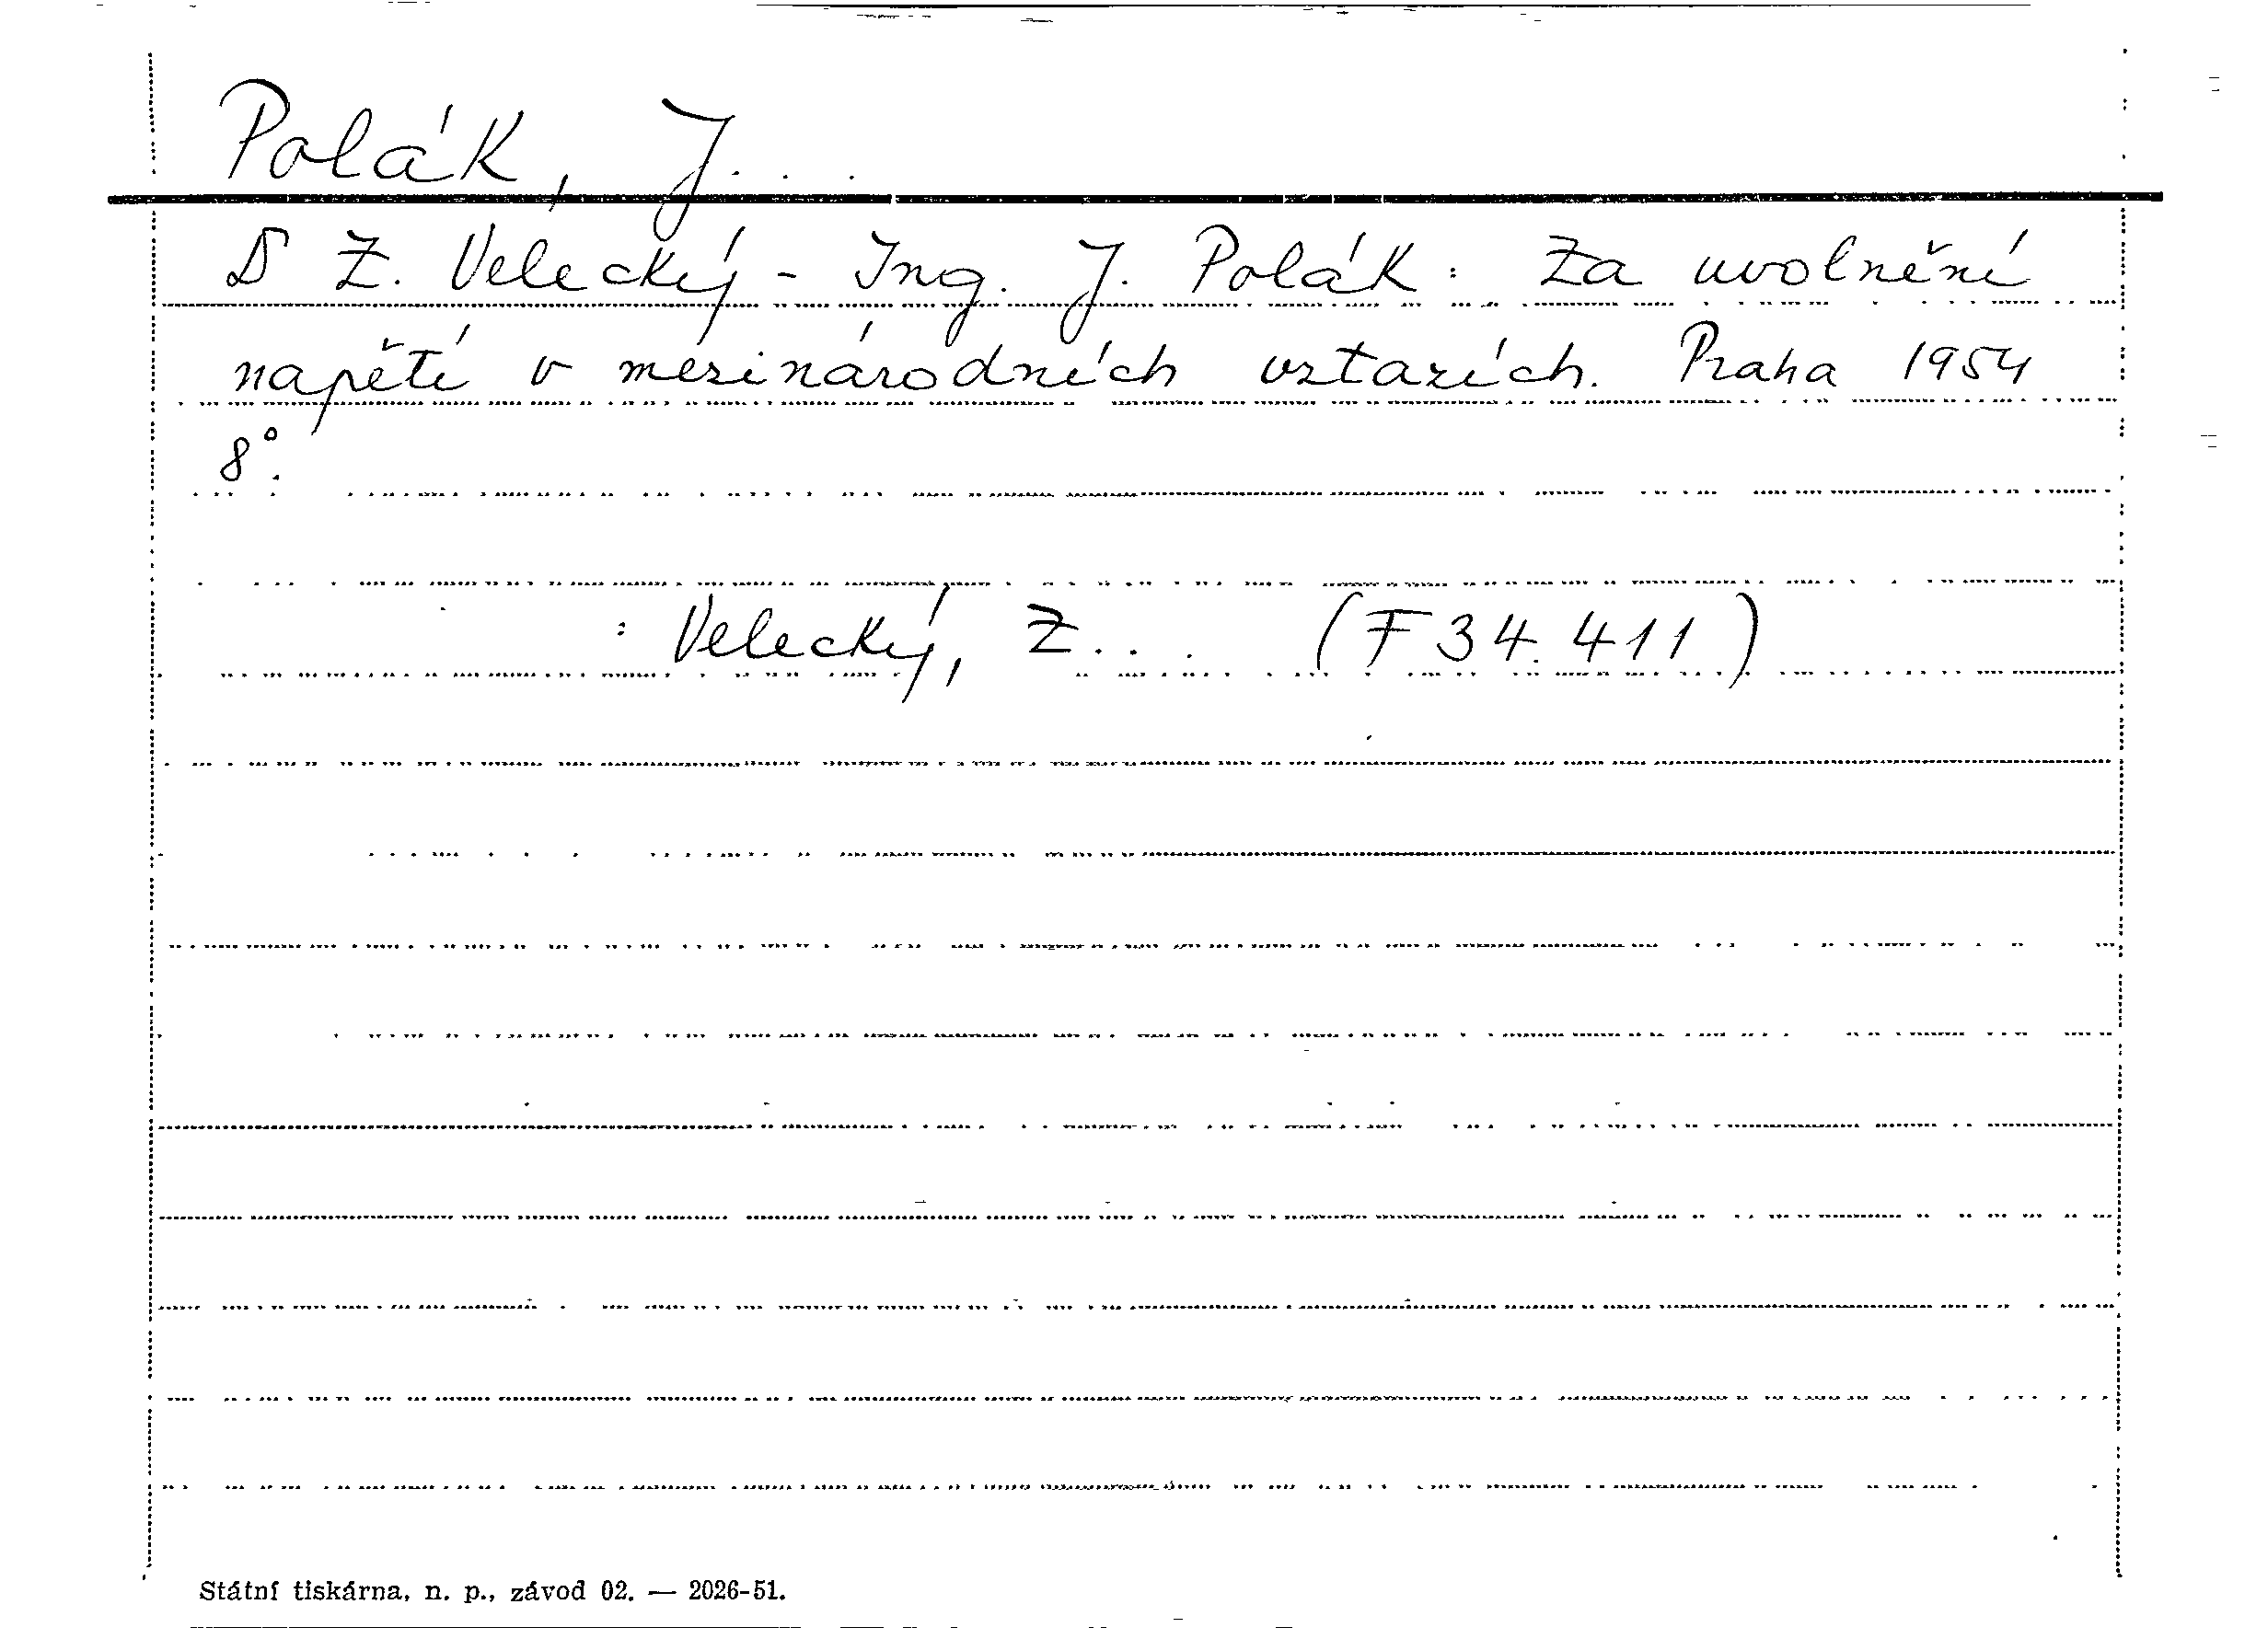 Polák, J...
D Z. Velecký - Ing. J. Polák: Za uvolnění
napětí v mezinárodních vztazích. Praha 1954
8°.
: Velecký, Z... (F 34.411)
Státní tiskárna, n. p., závod 02. — 2026-51.